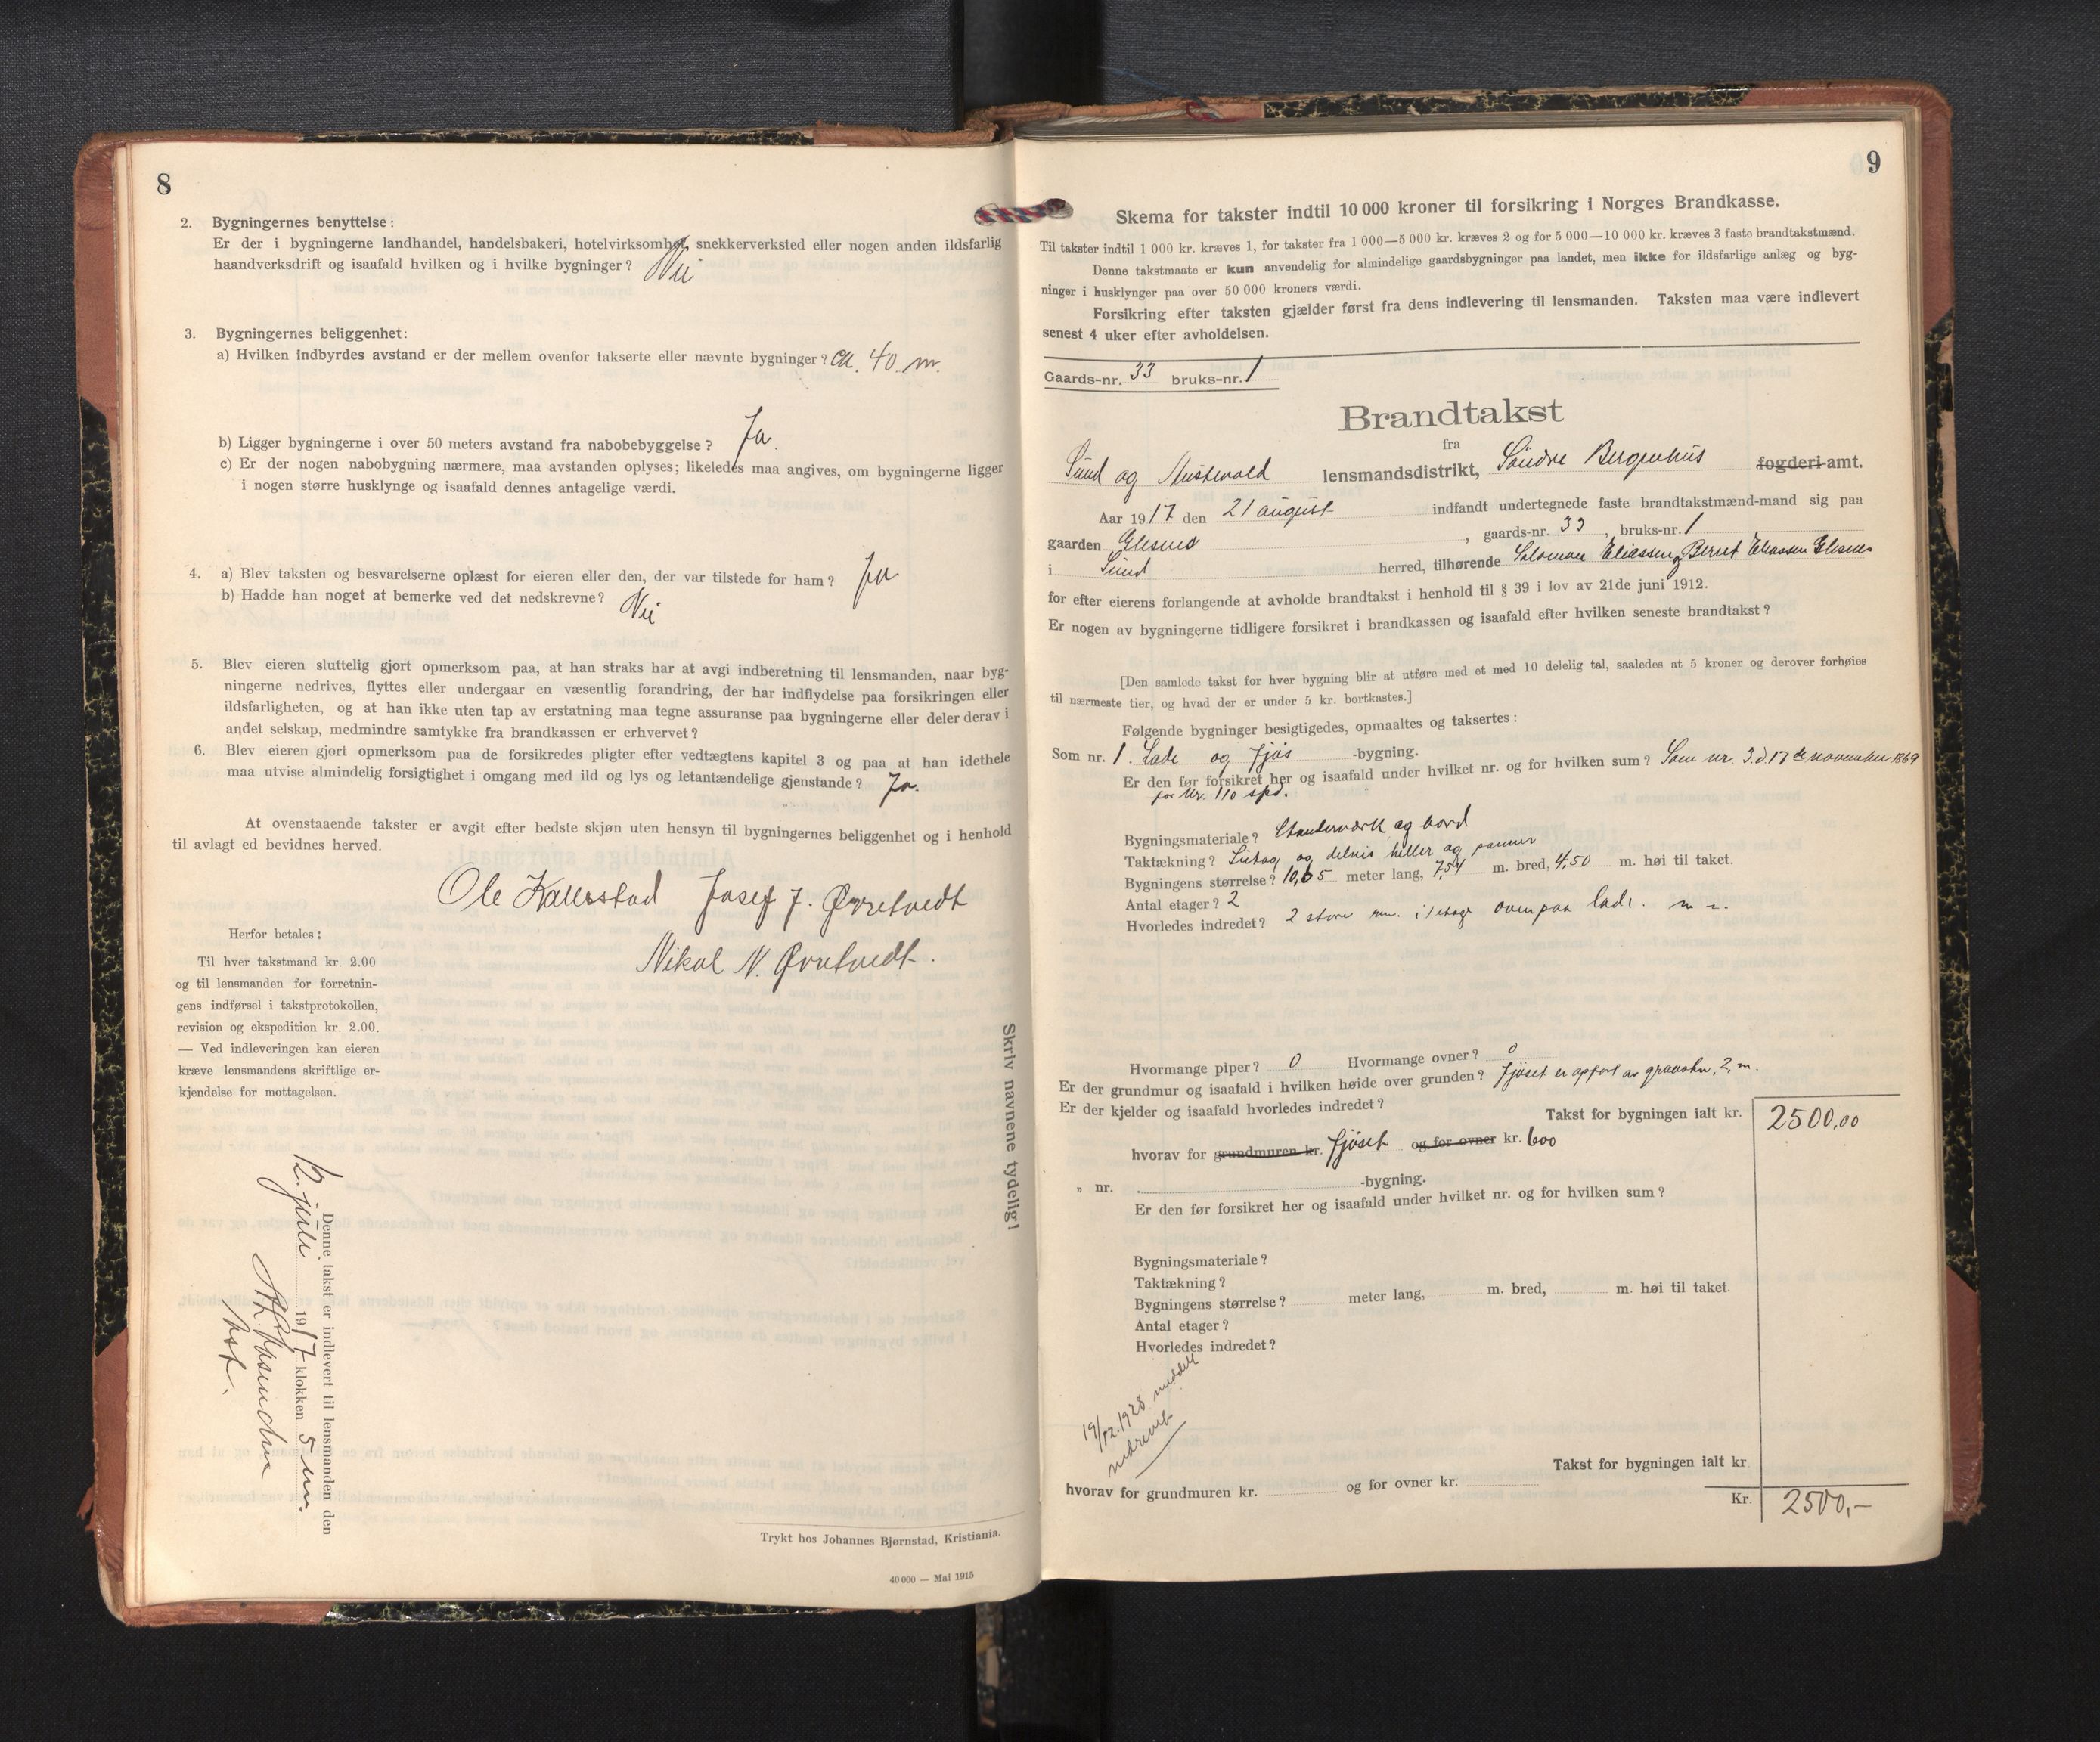 8
2. Bygningernes benyttelse:
Er der i bygningerne landhandel, handelsbakeri, hotelvirksomhet, snekkerverksted eller nogen anden ildsfarlig
haandverksdrift og isaafald hvilken og i hvilke bygninger? Nei
3. Bygningernes beliggenhet:
a) Hvilken indbyrdes avstand er der mellem ovenfor takserte eller nævnte bygninger? ca. 40 m.
b) Ligger bygningerne i over 50 meters avstand fra nabobebyggelse? Ja.
c) Er der nogen nabobygning nærmere, maa avstanden oplyses; likeledes maa angives, om bygningerne ligger
i nogen større husklynge og isaafald dennes antagelige værdi.
4. a) Blev taksten og besvarelserne oplæst for eieren eller den, der var tilstede for ham? Ja
b) Hadde han noget at bemerke ved det nedskrevne? Nei
5. Blev eieren sluttelig gjort opmerksom paa, at han straks har at avgi indberetning til lensmanden, naar byg-
ningerne nedrives, flyttes eller undergaar en væsentlig forandring, der har indflydelse paa forsikringen eller
ildsfarligheten, og at han ikke uten tap av erstatning maa tegne assuranse paa bygningerne eller deler derav i
andet selskap, medmindre samtykke fra brandkassen er erhvervet?
6. Blev eieren gjort opmerksom paa de forsikredes pligter efter vedtægtens kapitel 3 og paa at han idethele
maa utvise almindelig forsigtighet i omgang med ild og lys og letantændelige gjenstande? Ja.
At ovenstaaende takster er avgit efter bedste skjøn uten hensyn til bygningernes beliggenhet og i henhold
til avlagt ed bevidnes herved.
Ole Kallestad Josef J. Øvretvedt
Nikol N. Øvretvedt.
Herfor betales:
Til hver takstmand kr. 2.00
og til lensmanden for forretnin-
gens indførsel i takstprotokollen,
revision og ekspedition kr. 2.00.
— Ved indleveringen kan eieren
kræve lensmandens skriftlige er-
kjendelse for mottagelsen.
Skriv navnene tydelig!
Denne takst er indlevert til lensmanden den
12. juli 1917 klokken 5 em.
Trykt hos Johannes Bjørnstad, Kristiania.
40 000 — Mai 1915
9
Skema for takster indtil 10 000 kroner til forsikring i Norges Brandkasse.
Til takster indtil 1 000 kr. kræves 1, for takster fra 1 000—5 000 kr. kræves 2 og for 5 000—10 000 kr. kræves 3 faste brandtakstmænd.
Denne takstmaate er kun anvendelig for almindelige gaardsbygninger paa landet, men ikke for ildsfarlige anlæg og byg-
ninger i husklynger paa over 50 000 kroners værdi.
Forsikring efter taksten gjælder først fra dens indlevering til lensmanden. Taksten maa være indlevert
senest 4 uker efter avholdelsen.
Gaards-nr. 33 bruks-nr. 1
Brandtakst
fra
Sund og Austevold lensmandsdistrikt, Söndre Bergenhus fogderi amt.
Aar 1917 den 21 august indfandt undertegnede faste brandtakstmænd-mand sig paa
gaarden Glesnes, gaards-nr. 33, bruks-nr. 1
i Sund herred, tilhørende Salomon Eliassen og Bernt Eliassen Glesnes
for efter eierens forlangende at avholde brandtakst i henhold til § 39 i lov av 21de juni 1912.
Er nogen av bygningerne tidligere forsikret i brandkassen og isaafald efter hvilken seneste brandtakst?
[Den samlede takst for hver bygning blir at utføre med et med 10 delelig tal, saaledes at 5 kroner og derover forhøies
til nærmeste tier, og hvad der er under 5 kr. bortkastes.]
Følgende bygninger besigtigedes, opmaaltes og taksertes:
Som nr. 1. Lade og fjøs -bygning.
Er den før forsikret her og isaafald under hvilket nr. og for hvilken sum? Som nr. 3. d. 17de november 1869
for kr. 110 spd.
Bygningsmateriale? Standerværk og bord
Taktækning? og delvis heller og panner
Bygningens størrelse? 10,65 meter lang, 7,54 m. bred, 4,50 m. høi til taket.
Antal etager? 2
Hvorledes indredet? 2 store rum. i 1 etage ovenpaa lade.
Hvormange piper? 0 Hvormange ovner? 0
Er der grundmur og isaafald i hvilken høide over grunden? fjøset er opført av graasten, 2, m.
Er der kjelder og isaafald hvorledes indredet?
Takst for bygningen ialt kr. 2500,00
hvorav for grundmuren kr. fjöset og for ovner kr. 600
„ nr. -bygning.
Er den før forsikret her og isaafald under hvilket nr. og for hvilken sum?
Bygningsmateriale?
Taktækning?
Bygningens størrelse? meter lang, m. bred, m. høi til taket.
Antal etager?
Hvorledes indredet?
19/12.1928 meddelt
nedrevet
Takst for bygningen ialt kr
hvorav for grundmuren kr. og for ovner kr.
Kr. 2500,-